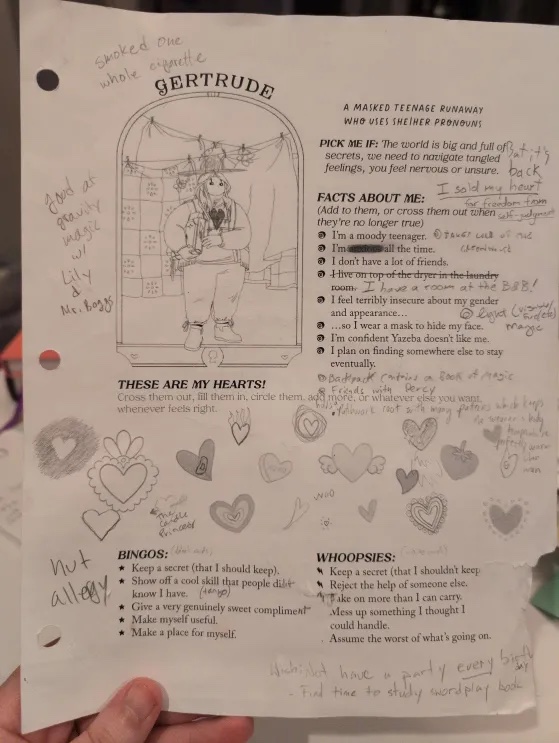 smoked one
whole cigarette
GERTRUDE
A MASKED TEENAGE RUNAWAY
WHO USES SHE/HER PRONOUNS
PICK ME IF: The world is big and full of
secrets, we need to navigate tangled
feelings, you feel nervous or unsure.
back
I sold my heart
for freedom from
self-judgment
FACTS ABOUT ME:
(Add to them, or cross them out when
they're no longer true)
I'm a moody teenager.
I'm all the time.
I don't have a lot of friends.
I live on top of the dryer in the laundry
room. I have a room at the B&B!
I feel terribly insecure about my gender
and appearance…
…so I wear a mask to hide my face.
I'm confident Yazeba doesn't like me.
I plan on finding somewhere else to stay
eventually.
Backpack contains a Book of Magic
Friends with Percy
good at
gravity
magic
w/
Lily
&
Mr. Boggs
THESE ARE MY HEARTS!
Cross them out, fill them in, circle them, add more, or whatever else you want,
whenever feels right.
The
Candle
Princess
nut
allergy
BINGOS:
Keep a secret (that I should keep).
Show off a cool skill that people didn't
know I have. (tango)
Give a very genuinely sweet compliment
Make myself useful.
Make a place for myself.
WHOOPSIES:
Keep a secret (that I shouldn't keep
Reject the help of someone else.
Take on more than I can carry.
Mess up something I thought I
could handle.
Assume the worst of what's going on.
have a party every birthday
- Find time to study swordplay book